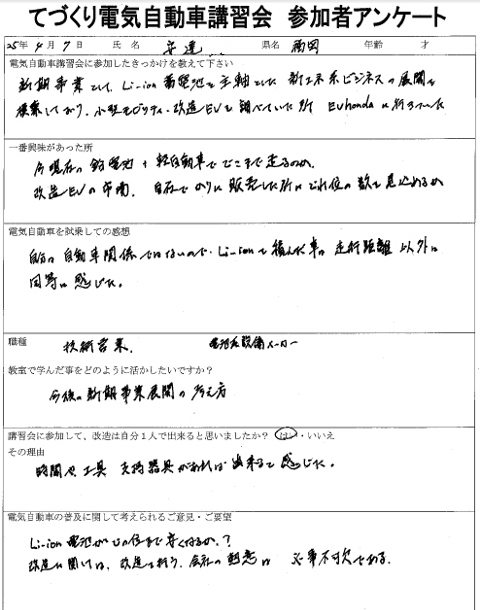 てづくり電気自動車講習会 参加者アンケート
25年 4月 7日 氏 名 安達 県名 年齢 才
電気自動車講習会に参加したきっかけを教えて下さい
新規事業として、Li-ion蓄電池を主軸とした 新エネ系ビジネスの展開を
模索しており、小型モビリティ、改造EVを調べていた所 EVhondaに行きついた
一番興味があった所
今現存の鉛電池+軽自動車でどこまで走るのか。
改造EVの市場、自社でのりに販売した所にどれ位の数を見込めるか
電気自動車を試乗しての感想
自分は自動車関係ではないので、Li-ionを積んだ車は走行距離以外は
同等に感じた。
職種 技術営業、 電池 設備メーカー
教室で学んだ事をどのように活かしたいですか?
今後の新規事業展開の考え方
講習会に参加して、改造は自分1人で出来ると思いましたか? はい・いいえ
その理由
時間や工具 支持器具があれば出来ると感じた。
電気自動車の普及に関して考えられるご意見・ご要望
Li-ion電池がどの位まで安くなるか。?
改造に関しては、改造を行う、会社の熱意は 必要不可欠である。